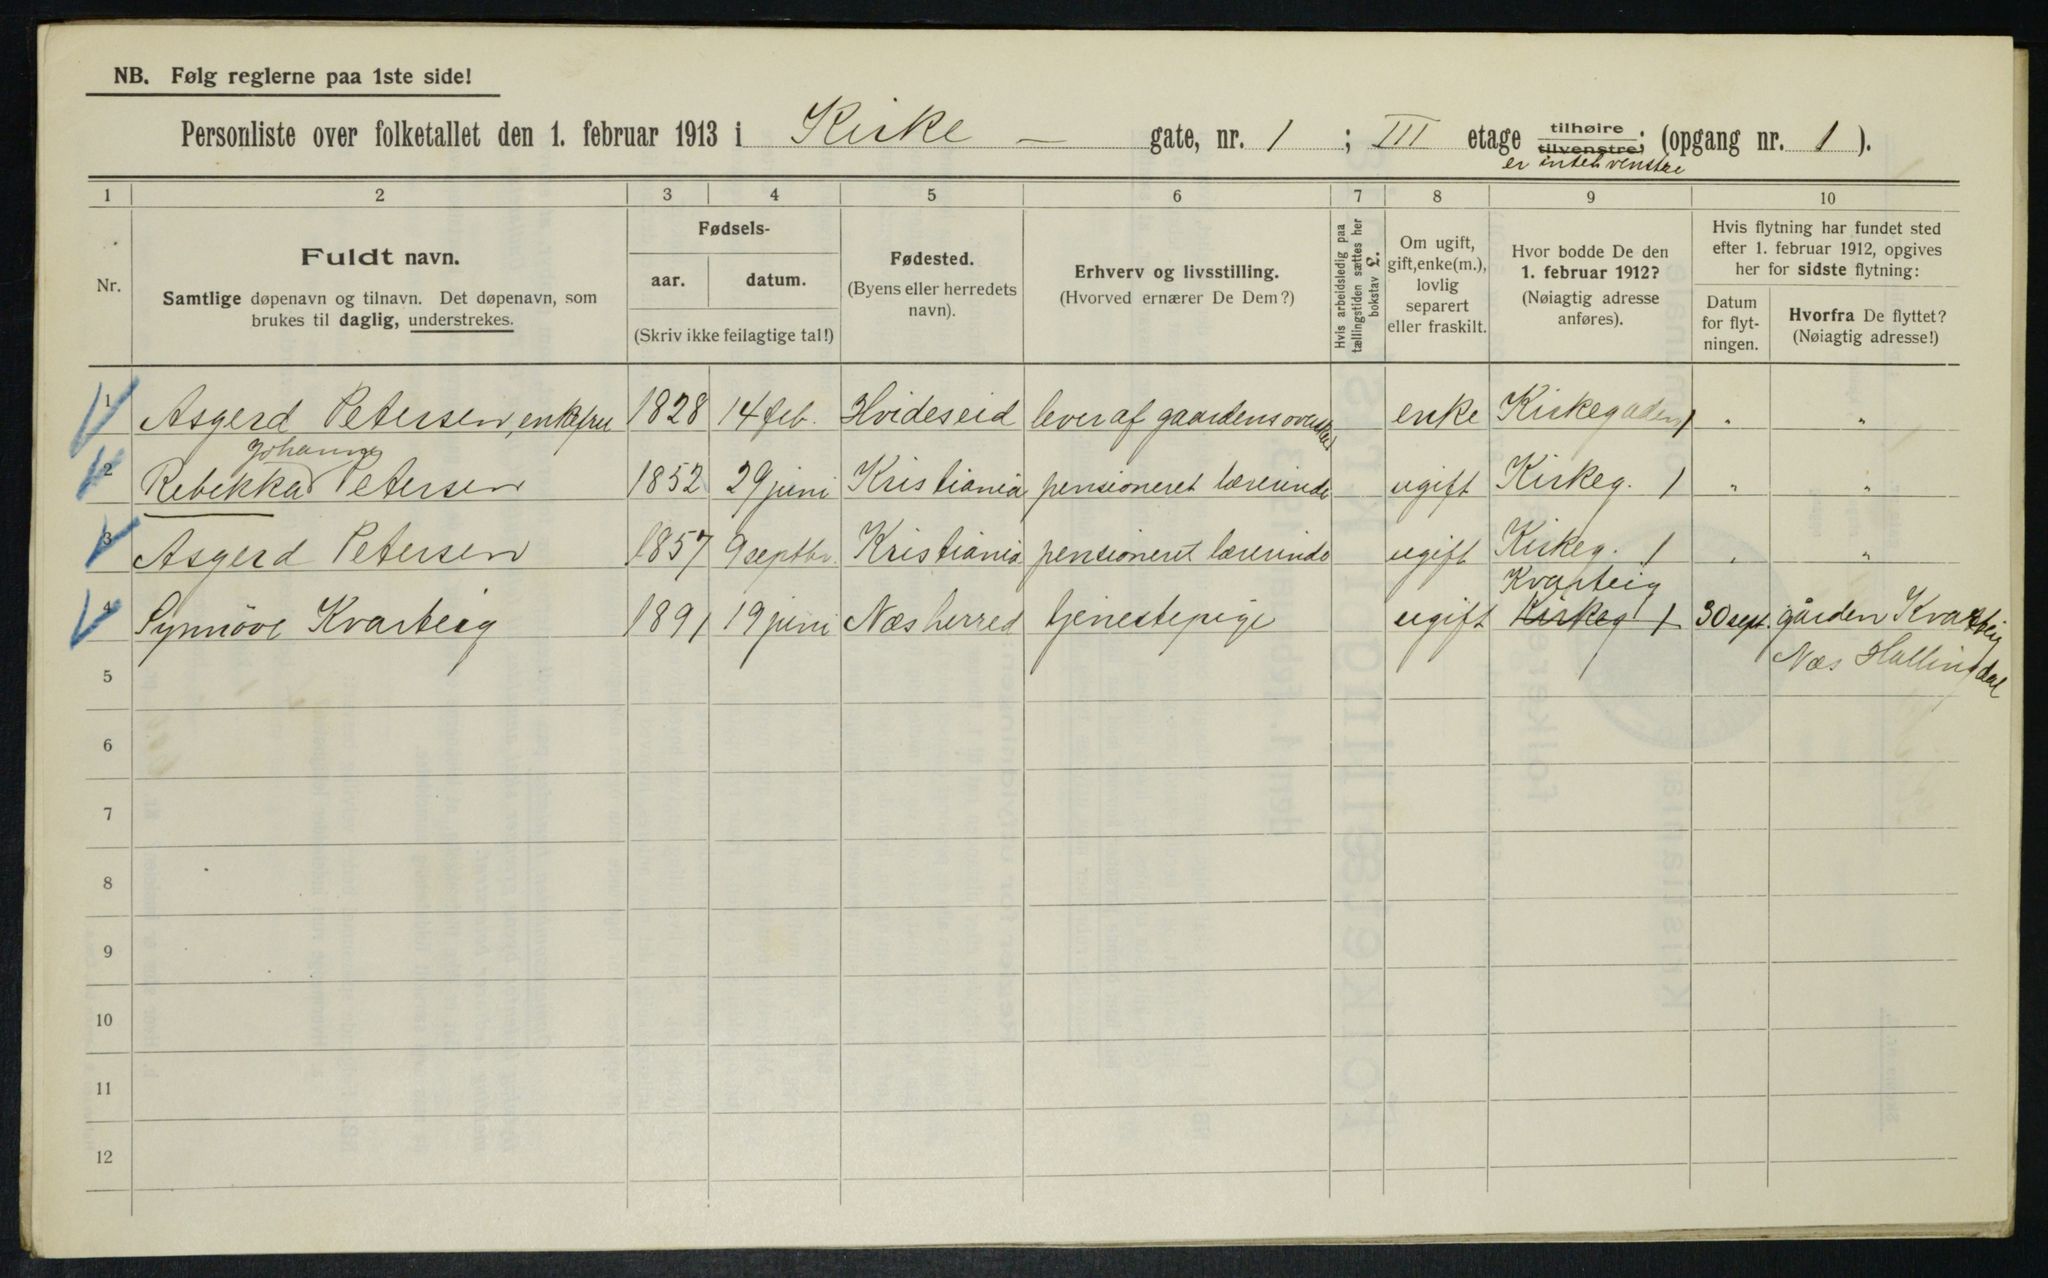 NB. Følg reglerne paa 1ste side!
Personliste over folketallet den 1. februar 1913 i Kirke — gate, nr. 1 ; III etage tilhøire tilvenstre; (opgang nr. 1 ).
er intet venstre
1 2 3 4 5 6 7 8 9 10
Nr.
Fuldt navn.
Samtlige døpenavn og tilnavn. Det døpenavn, som
brukes til daglig, understrekes.
Fødsels-
aar. datum.
(Skriv ikke feilagtige tal!)
Fødested.
(Byens eller herredets
navn).
Erhverv og livsstilling.
(Hvorved ernærer De Dem?)
Hvis arbeidsledig paa
tællingstiden sættes her
bokstav L.
Om ugift,
gift, enke(m.),
lovlig
separert
eller fraskilt.
Hvor bodde De den
1. februar 1912?
(Nøiagtig adresse
anføres).
Hvis flytning har fundet sted
efter 1. februar 1912, opgives
her for sidste flytning:
Datum
for flyt-
ningen.
Hvorfra De flyttet?
(Nøiagtig adresse!)
1 Asgerd Petersen, enkefru 1828 14 feb. Hvideseid lever af gaardens overskud enke Kirkegaden 1 " "
Johanne
2 Rebekka Petersen 1852 29 juni Kristiania pensioneret lærerinde ugift Kirkeg. 1 " "
3 Asgerd Petersen 1857 9 septbr. Kristiania pensioneret lærerinde ugift Kirkeg. 1 " "
Kvarteig
4 Synnöve Kvarteig 1891 19 juni Næs herred tjenestepige ugift Kirkeg 1 30 sept. gården Kvarteig
Næs Hallingdal
5
6
7
8
9
10
11
12